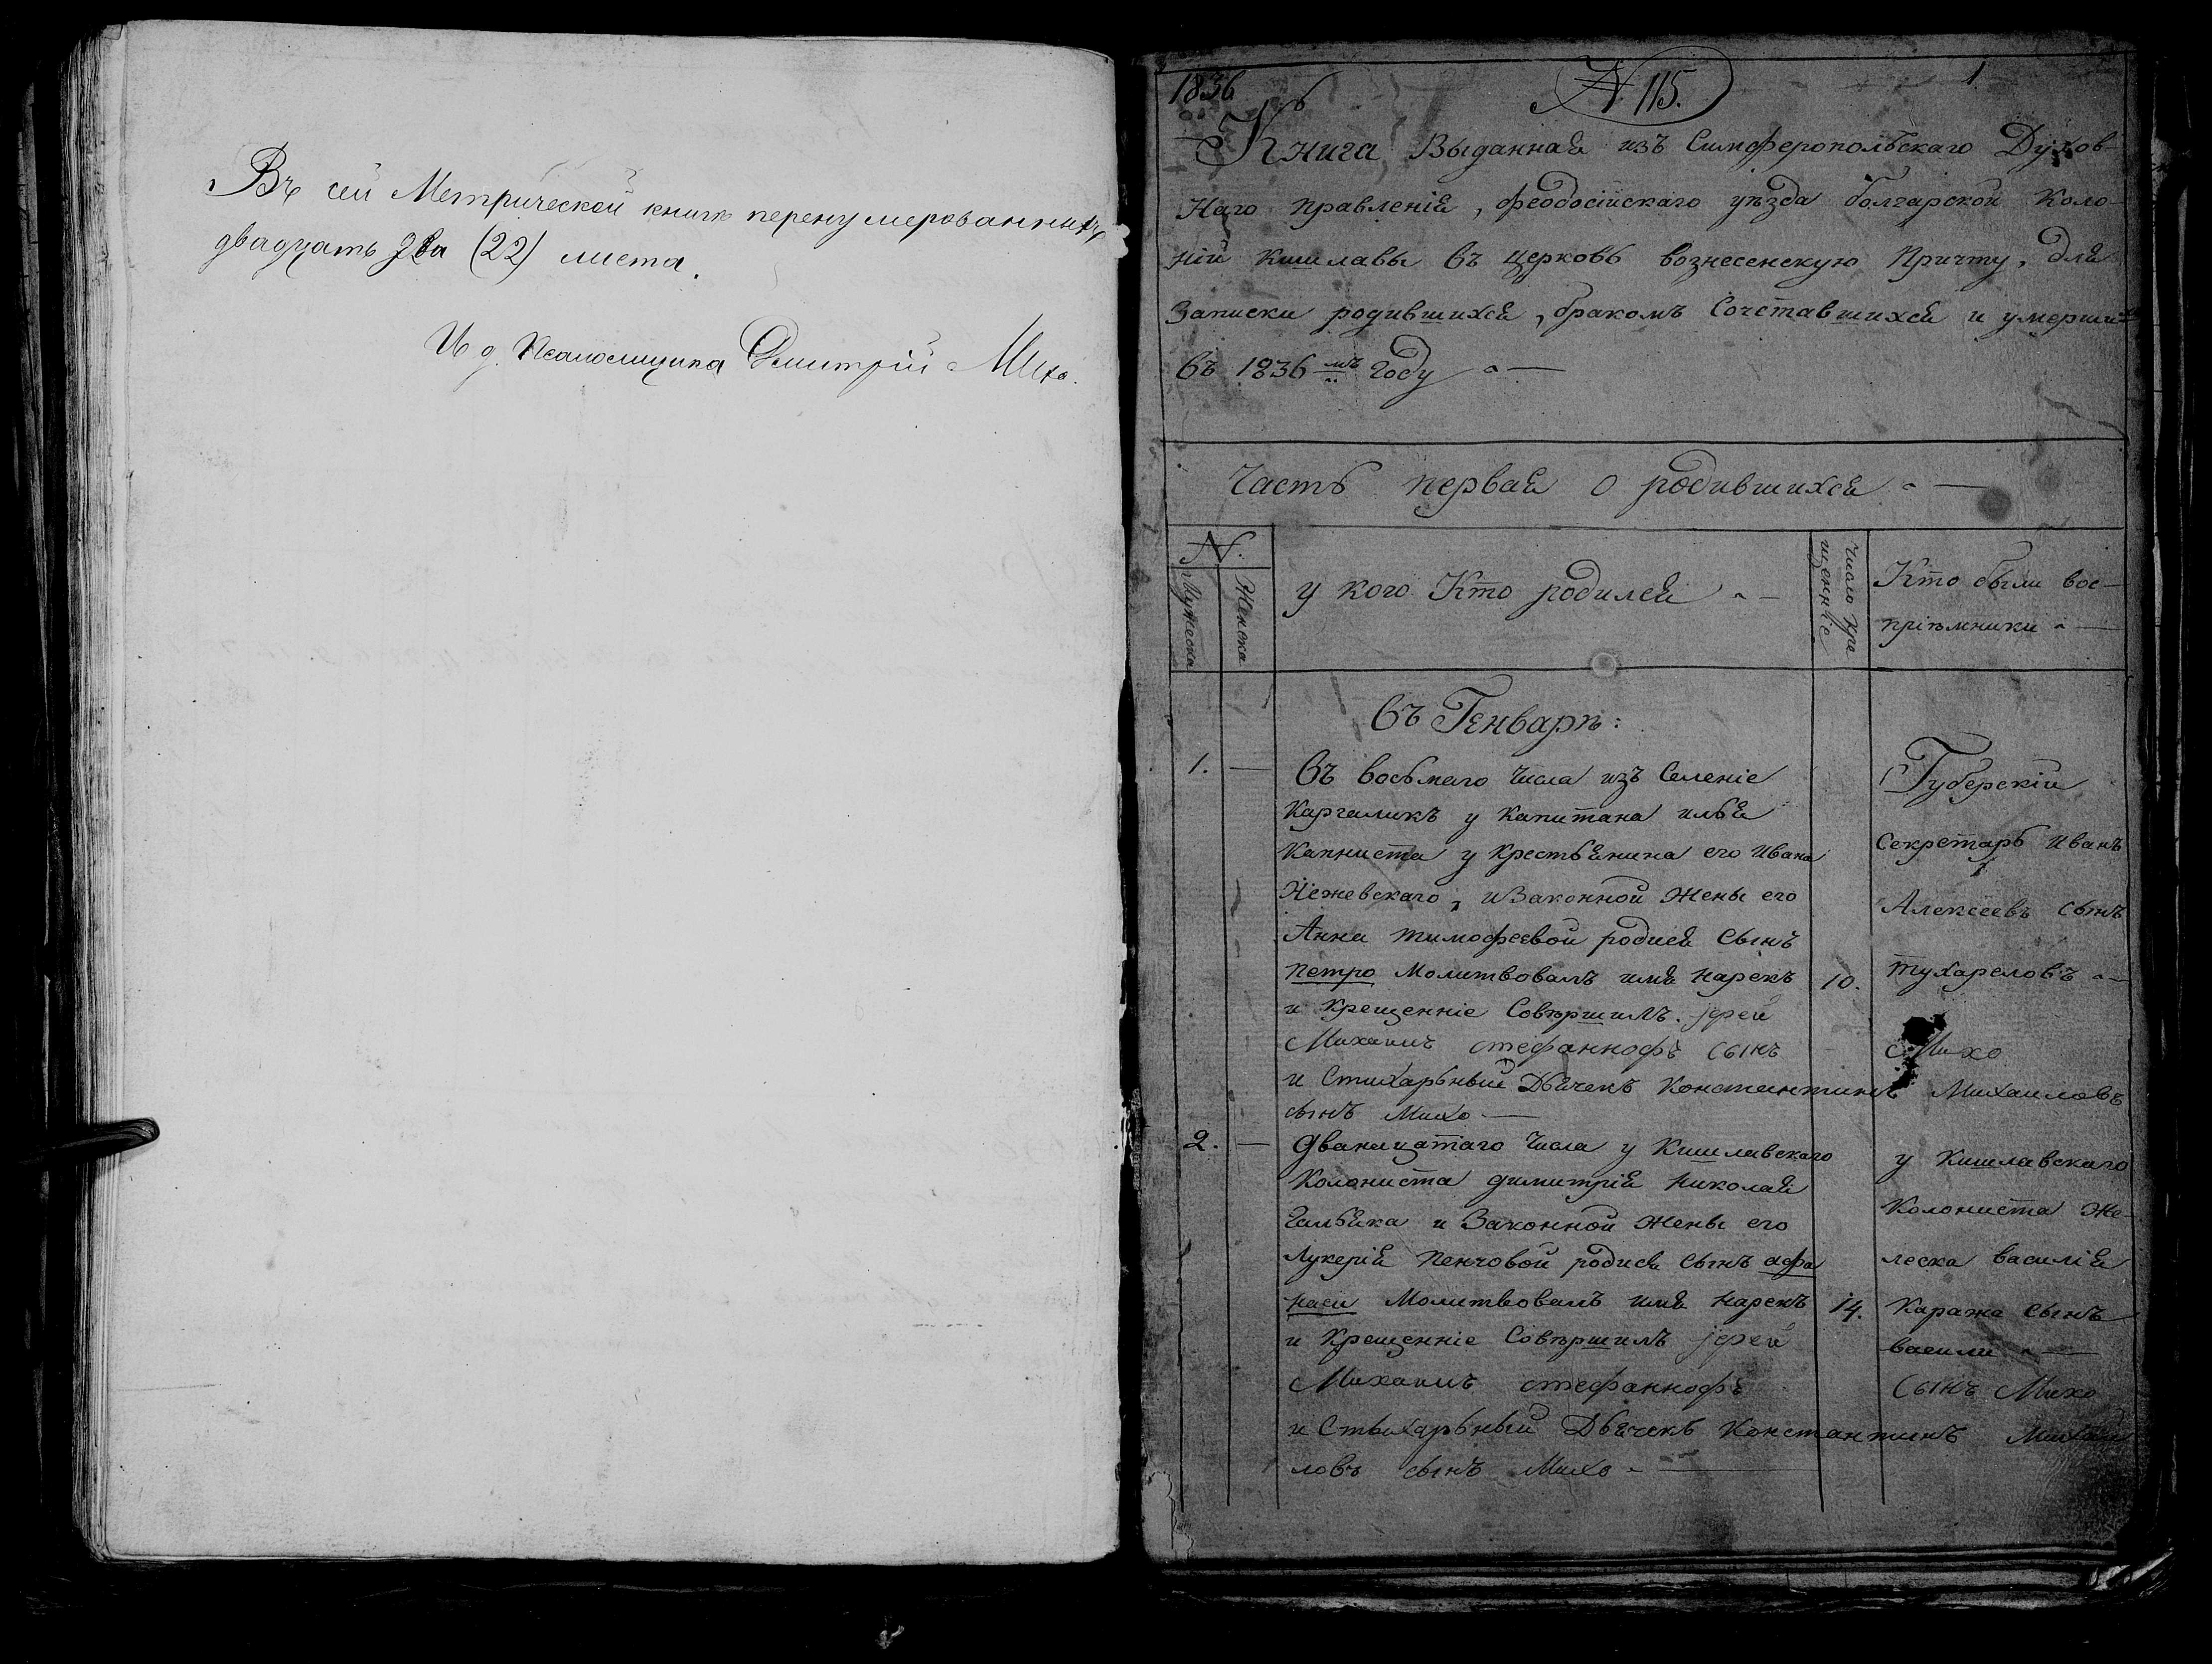 Въ сей Метрической книге перенумерованныхъ
двадцать два (22) листа.
И. д. Псаломщика Дмитрій Михо.
1836
N 115.
1
Книга Выданная изъ Симферопольскаго Духов-
наго правленія, феодосійскаго уѣзда болгарской Коло-
ній Кишлавы въ церковь вознесенскую Причту, для
Записки родившихся, бракомъ Сочетавшихся и умерших
въ 1836 мъ Году
Часть первая о родившихся
N.
Мужеска
Женска
у кого Кто родился
число кре
щенніе
Кто были вос-
пріѣмники
въ Генварѣ:
1. — въ восьмаго числа изъ Селеніе
Каргаликъ у Капитана илья
Капниста у крестьянина его Ивана
Нежевскаго, и Законной Жены его
Анна тимофеевой родися Сынъ
петро Молитвовалъ имя нарекъ 10.
и Крещенніе Совѣршилъ. јерей
Михаилъ стефанновъ сынъ
и Стихарьный Дьячекъ Константинъ Михаиловъ
сынъ Михо —
Губерскій
Секретарь Иванъ
Алексеевъ сынъ
тухареловъ
Михо
2. — Дванацатаго Числа у Кишлавскаго
Колониста димитрія николая
Гальяка и Законной Жены его
Лукерія Пенчовой родися Сынъ афа
наси Молитвовалъ имя Нарекъ 14.
и Крещенніе Совѣршилъ јерей
Михаилъ стефанновъ
и Стихарьный Дьячекъ Константинъ Михаи
ловъ сынъ Михо
у Кишлавскаго
Колониста Же-
леска василія
Каража сынъ
васили
сынъ Михо